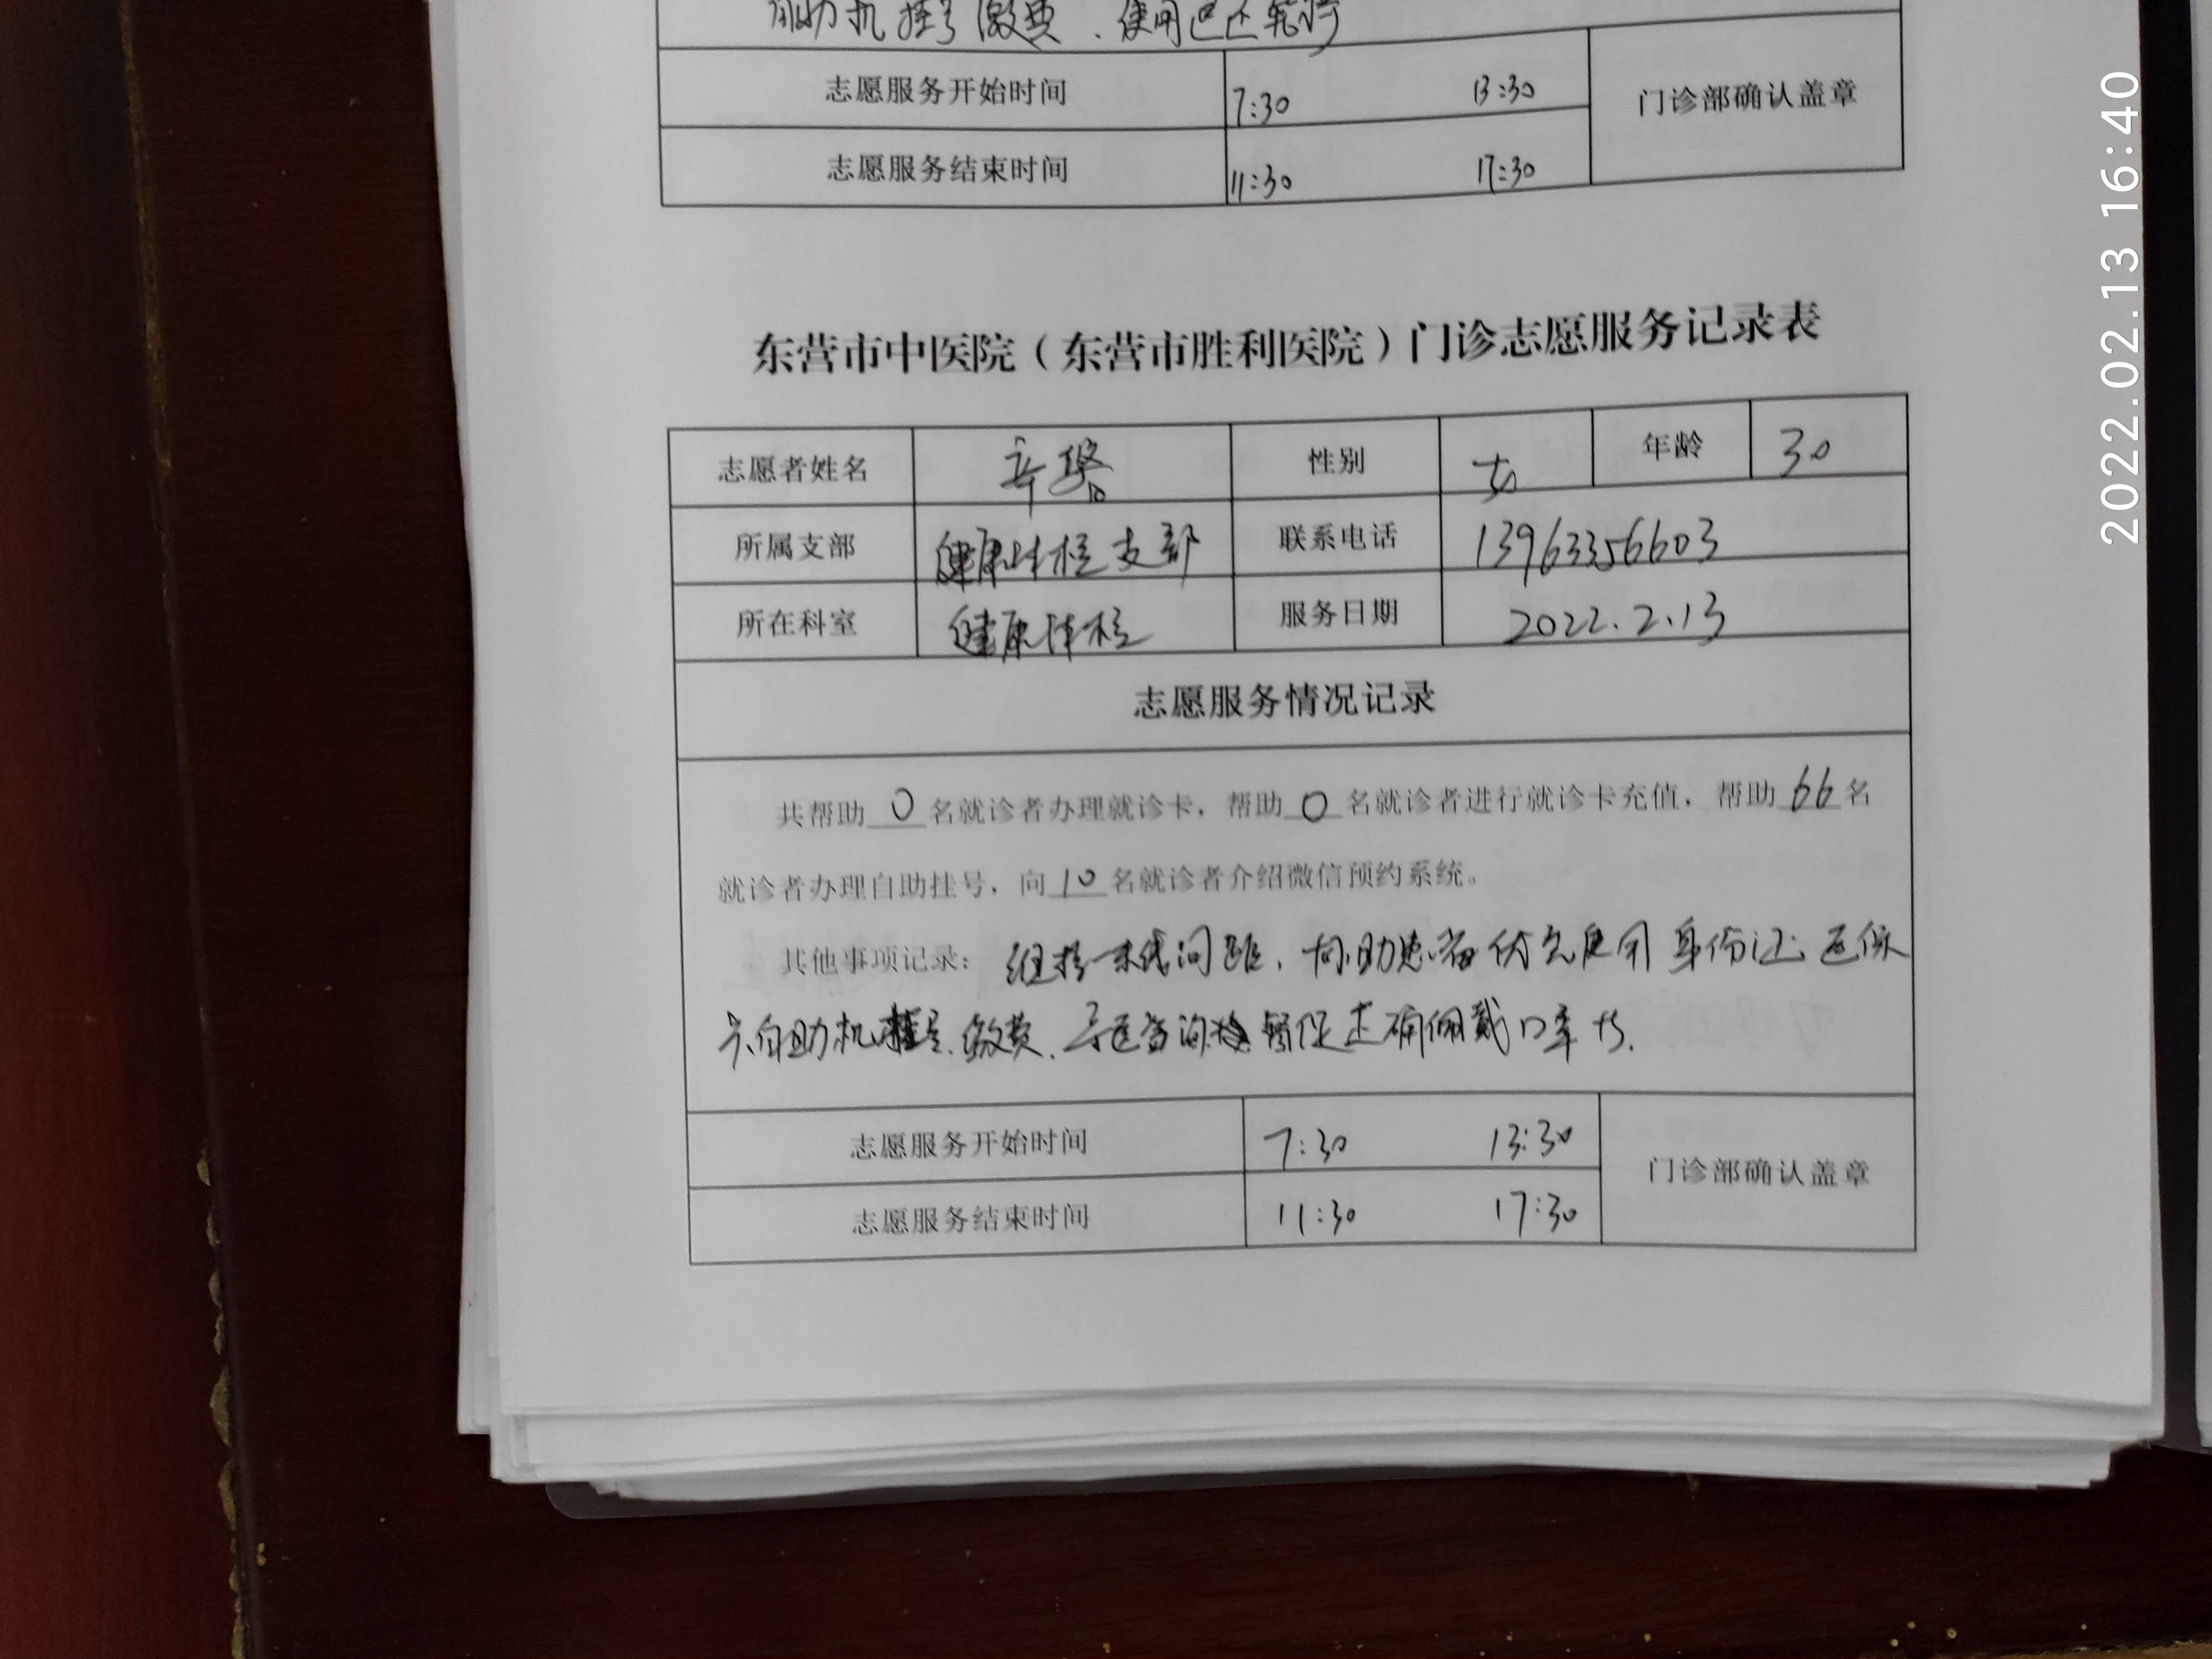 自助机挂号缴费、使用
志愿服务开始时间 7:30 13:30 门诊部确认盖章
志愿服务结束时间 11:30 17:30
东营市中医院（东营市胜利医院）门诊志愿服务记录表
志愿者姓名 辛 性别 女 年龄 30
所属支部 健康体检支部 联系电话 13963356603
所在科室 健康体检 服务日期 2022.2.13
志愿服务情况记录
共帮助 0 名就诊者办理就诊卡，帮助 0 名就诊者进行就诊卡充值，帮助 66 名
就诊者办理自助挂号，向 10 名就诊者介绍微信预约系统。
其他事项记录： 维持一米线问题，协助患者优先使用身份证、医保
卡自助机挂号、缴费、导医咨询 督促正确佩戴口罩等.
志愿服务开始时间 7:30 13:30 门诊部确认盖章
志愿服务结束时间 11:30 17:30
2022.02.13 16:40